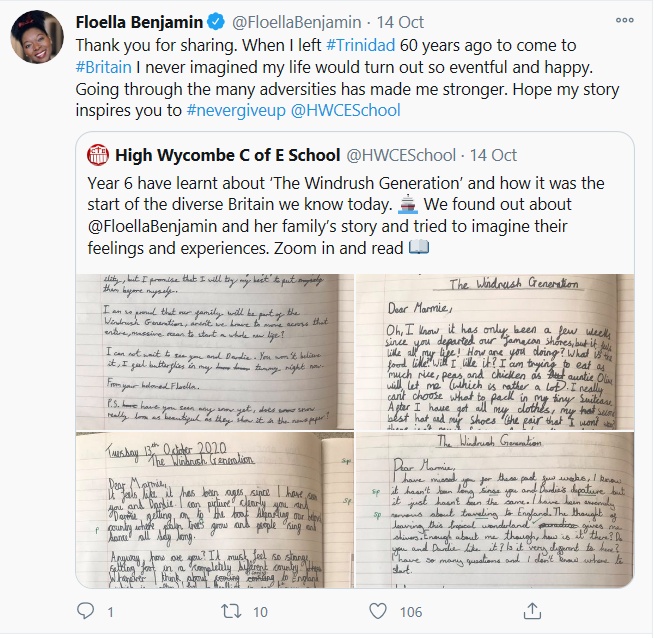 Floella Benjamin @FloellaBenjamin · 14 Oct
Thank you for sharing. When I left #Trinidad 60 years ago to come to
#Britain I never imagined my life would turn out so eventful and happy.
Going through the many adversities has made me stronger. Hope my story
inspires you to #nevergiveup @HWCESchool
High Wycombe C of E School @HWCESchool · 14 Oct
Year 6 have learnt about 'The Windrush Generation' and how it was the
start of the diverse Britain we know today. 🚢 We found out about
@FloellaBenjamin and her family's story and tried to imagine their
feelings and experiences. Zoom in and read 📖
but I promise that I will try my best to put myself
then before myself.
I am so proud that our family will be part of the
Windrush Generation, aren't we brave to move across that
entire, massive ocean to start a whole new life?
I can not wait to see you and Dardie. You won't believe
it, I feel butterflies in my tummy right now.
From your beloved Floella.
P.S. have you seen any snow yet, does snow
really look as beautiful as they show it in the news paper?
The Windrush Generation
Dear Marmie,
Oh, I know it has only been a few weeks
since you departed our Jamaican shores, but it feels
like all my life! How are you doing? What is the
food like? Will I like it? I am trying to eat as
much rice, peas and chicken as auntie Olive
will let me (which is rather a lot). I really
can't choose what to pack in my tiny suitcase.
After I have got all my clothes, my second
best hat and my shoes (the pair that I won't wear
Tuesday 13th October 2020
The Windrush Generation
Dear Marmie,
It feels like it has been ages, since I have seen
you and Dardie. I can picture clearly you and
Dardie getting on to the boat departing our
country where palm trees grow and people sing and
dance all day long.
Anyway, how are you? It must feel so strange,
setting foot in a completely different country.
Whenever I think about coming to England
Sp
Sp
P
The Windrush Generation
Dear Marmie,
I have missed you for these past few weeks, I know
it hasn't been long since you and Dardie's departure but
it just hasn't been the same. I have been
nervous about traveling to England. The thought of
leaving this tropical wonderland gives me
shivers. Enough about me though, how is it there? Do
you and Dardie like it? Is it very different to here?
I have so many questions and I don't know where to
start.
sp
sp
1
10
106